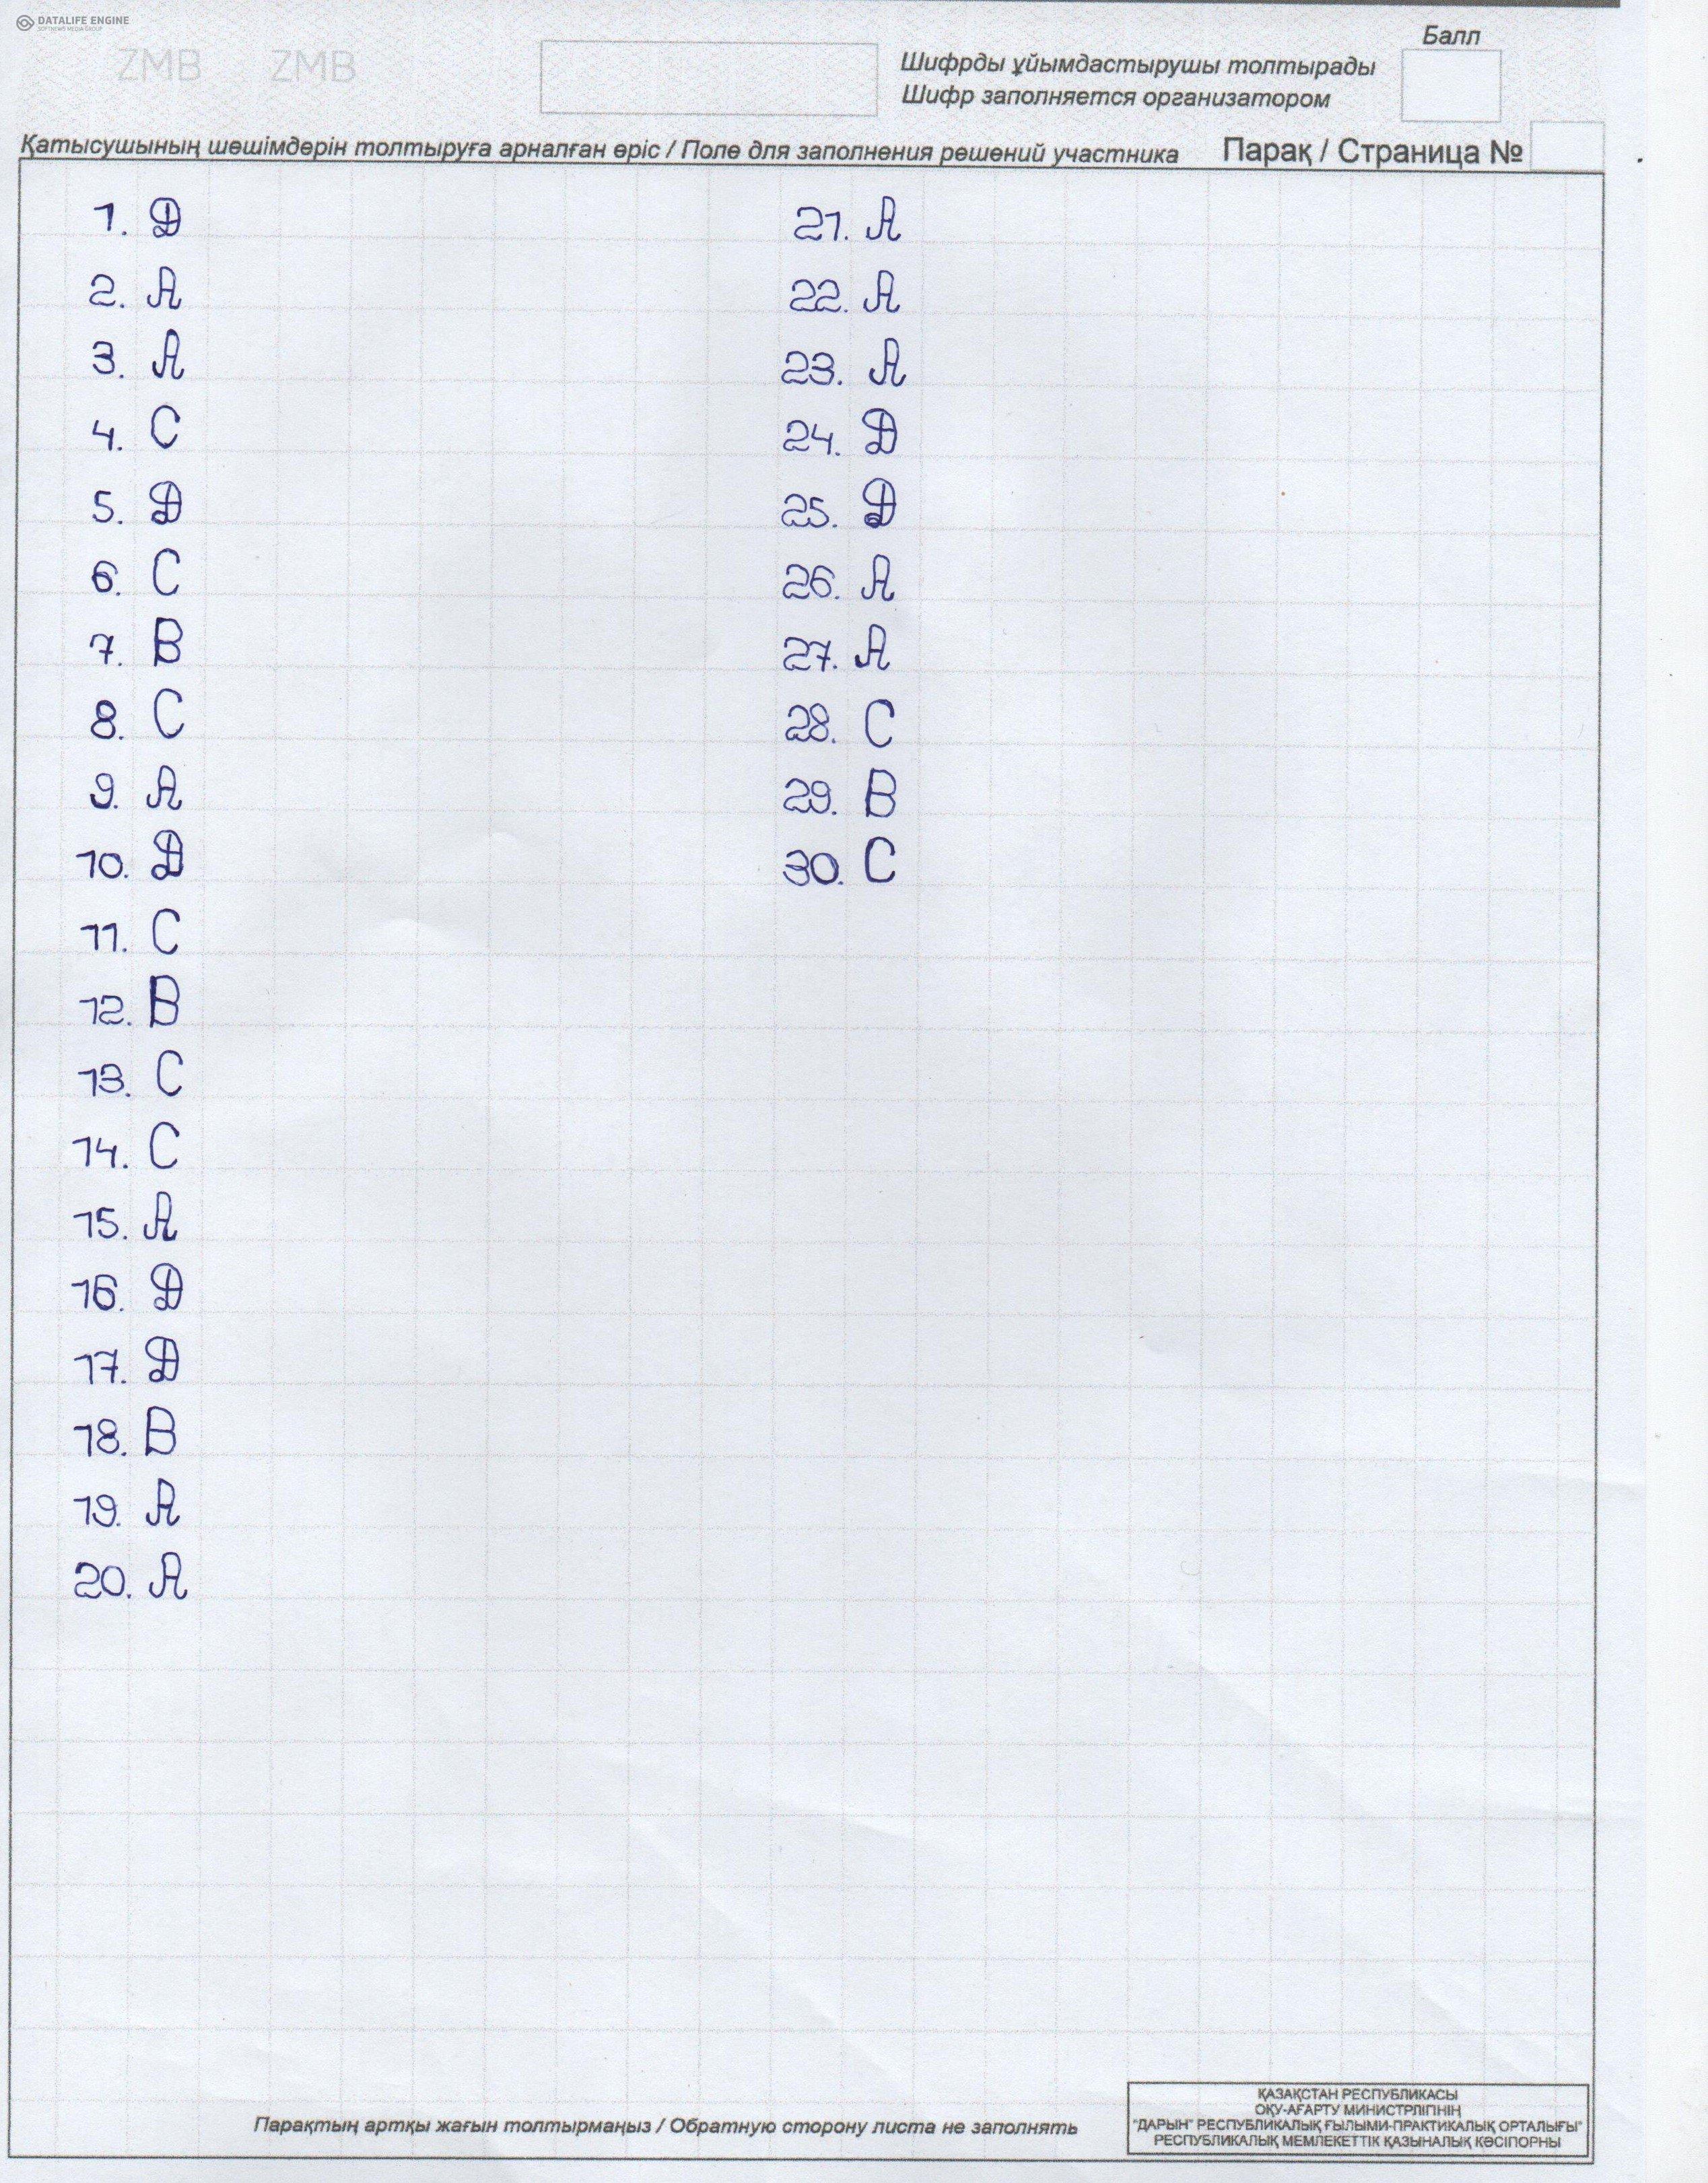 DATALIFE ENGINE
SOFTNEWS MEDIA GROUP
ZMB ZMB
Балл
Шифрды ұйымдастырушы толтырады
Шифр заполняется организатором
Қатысушының шешімдерін толтыруға арналған өріс / Поле для заполнения решений участника
Парақ / Страница №
1. D
2. A
3. A
4. C
5. D
6. C
7. B
8. C
9. A
10. D
11. C
12. B
13. C
14. C
15. A
16. D
17. D
18. B
19. A
20. A
21. A
22. A
23. A
24. D
25. D
26. A
27. A
28. C
29. B
30. C
Парақтың артқы жағын толтырмаңыз / Обратную сторону листа не заполнять
ҚАЗАҚСТАН РЕСПУБЛИКАСЫ
ОҚУ-АҒАРТУ МИНИСТРЛІГІНІҢ
"ДАРЫН" РЕСПУБЛИКАЛЫҚ ҒЫЛЫМИ-ПРАКТИКАЛЫҚ ОРТАЛЫҒЫ"
РЕСПУБЛИКАЛЫҚ МЕМЛЕКЕТТІК ҚАЗЫНАЛЫҚ КӘСІПОРНЫ